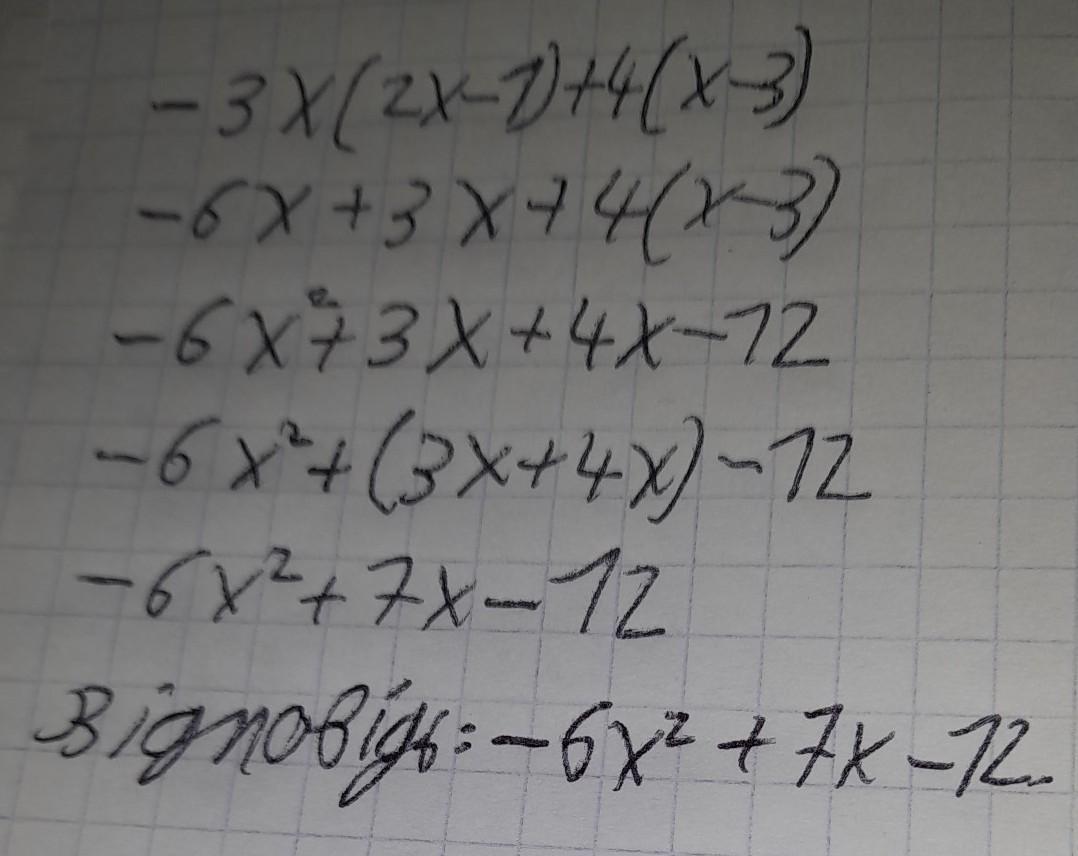 -3x(2x-1)+4(x-3)
-6x+3x+4(x-3)
-6x²+3x+4x-12
-6x²+(3x+4x)-12
-6x²+7x-12
Відповідь: -6x²+7x-12.